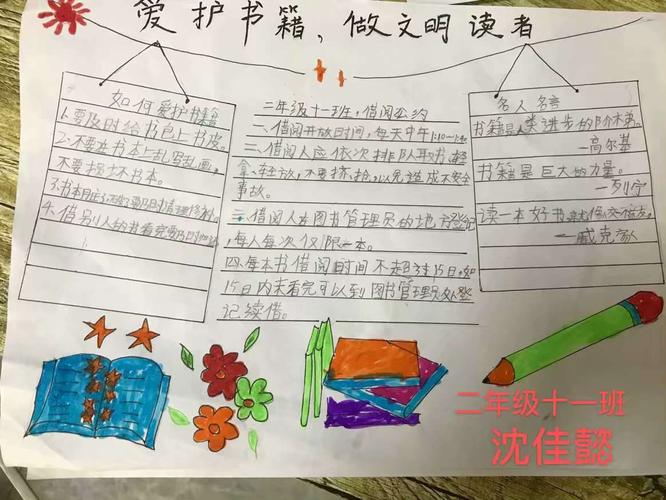 爱护书籍，做文明读者
如何爱护书籍
1.要及时给书包上书皮。
2.不要在书本上乱写乱画，
不要损坏书本。
3.书本用完
4.借别人的书看完要及时
二年级十一班，借阅公约
一、借阅开放时间，每天中午1:10—1:40
二、借阅人应依次排队取书，轻
拿、轻放，不要挤、抢，以免造成不安全
事故。
三、借阅人在图书管理员的地方登记
，每人每次仅限一本。
四、每本书借阅时间不超过15日，如
15日内未看完可以到图书管理员处登
记续借。
名人名言
书籍是人类进步的阶梯。
—高尔基
书籍是巨大的力量。
—列宁
读一本好书
—臧克家
二年级十一班
沈佳懿